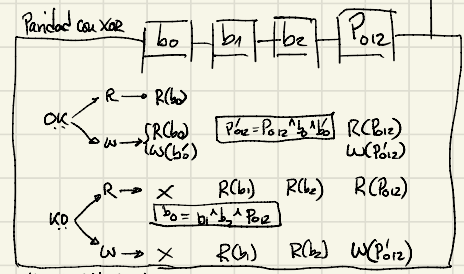 Paridad con XOR
b0 b1 b2 P012
R → R(b0)
OK
W → R(b0) P'012 = P012 ^ b0 ^ b'0 R(P012)
W(b'0) W(P'012)
R → X R(b1) R(b2) R(P012)
KO b0 = b1 ^ b2 ^ P012
W → X R(b1) R(b2) W(P'012)